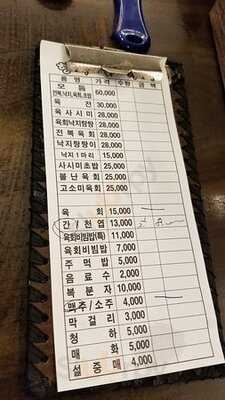 품 명 가 격 수량 금 액
모 듬
전복,낙지,육회,초밥 60,000
육 전 30,000
육 사 시 미 28,000
육회낙지탕탕 28,000
전 복 육 회 28,000
낙지탕탕이 28,000
낙지 1 마리 15,000
사시미초밥 25,000
불 난 육 회 25,000
고소미육회 25,000
육 회 15,000
간 / 천 엽 13,000
육회비빔밥(특) 11,000
육회비빔밥 7,000
주 먹 밥 5,000
음 료 수 2,000
복 분 자 10,000
맥주 / 소주 4,000
막 걸 리 3,000
청 하 5,000
매 화 5,000
설 중 매 4,000